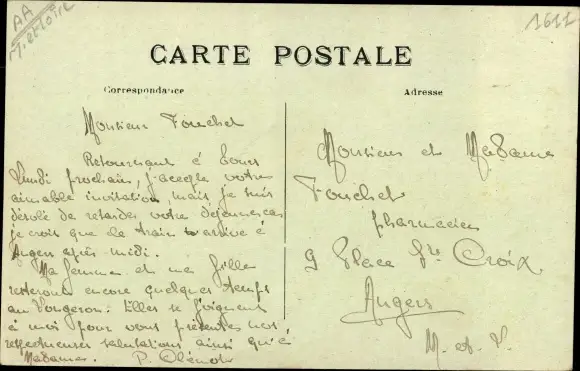 AA
M. et Loire
1611
CARTE POSTALE
Correspondance
Monsieur Fouchet
Retournant à Tours
lundi prochain, j'accepte votre
aimable invitation, mais je suis
désolé de retarder votre déjeuner car
je crois que le train arrive à
Angers après midi.
Ma femme et ma fille
resteront encore quelque temps
au Vongeron. Elles se joignent
à moi pour vous présenter nos
respectueuses salutations ainsi qu'à
Madame. P.
Adresse
Monsieur et Madame
Fouchet
pharmacien
9 Place Ste Croix
Angers
M. et L.